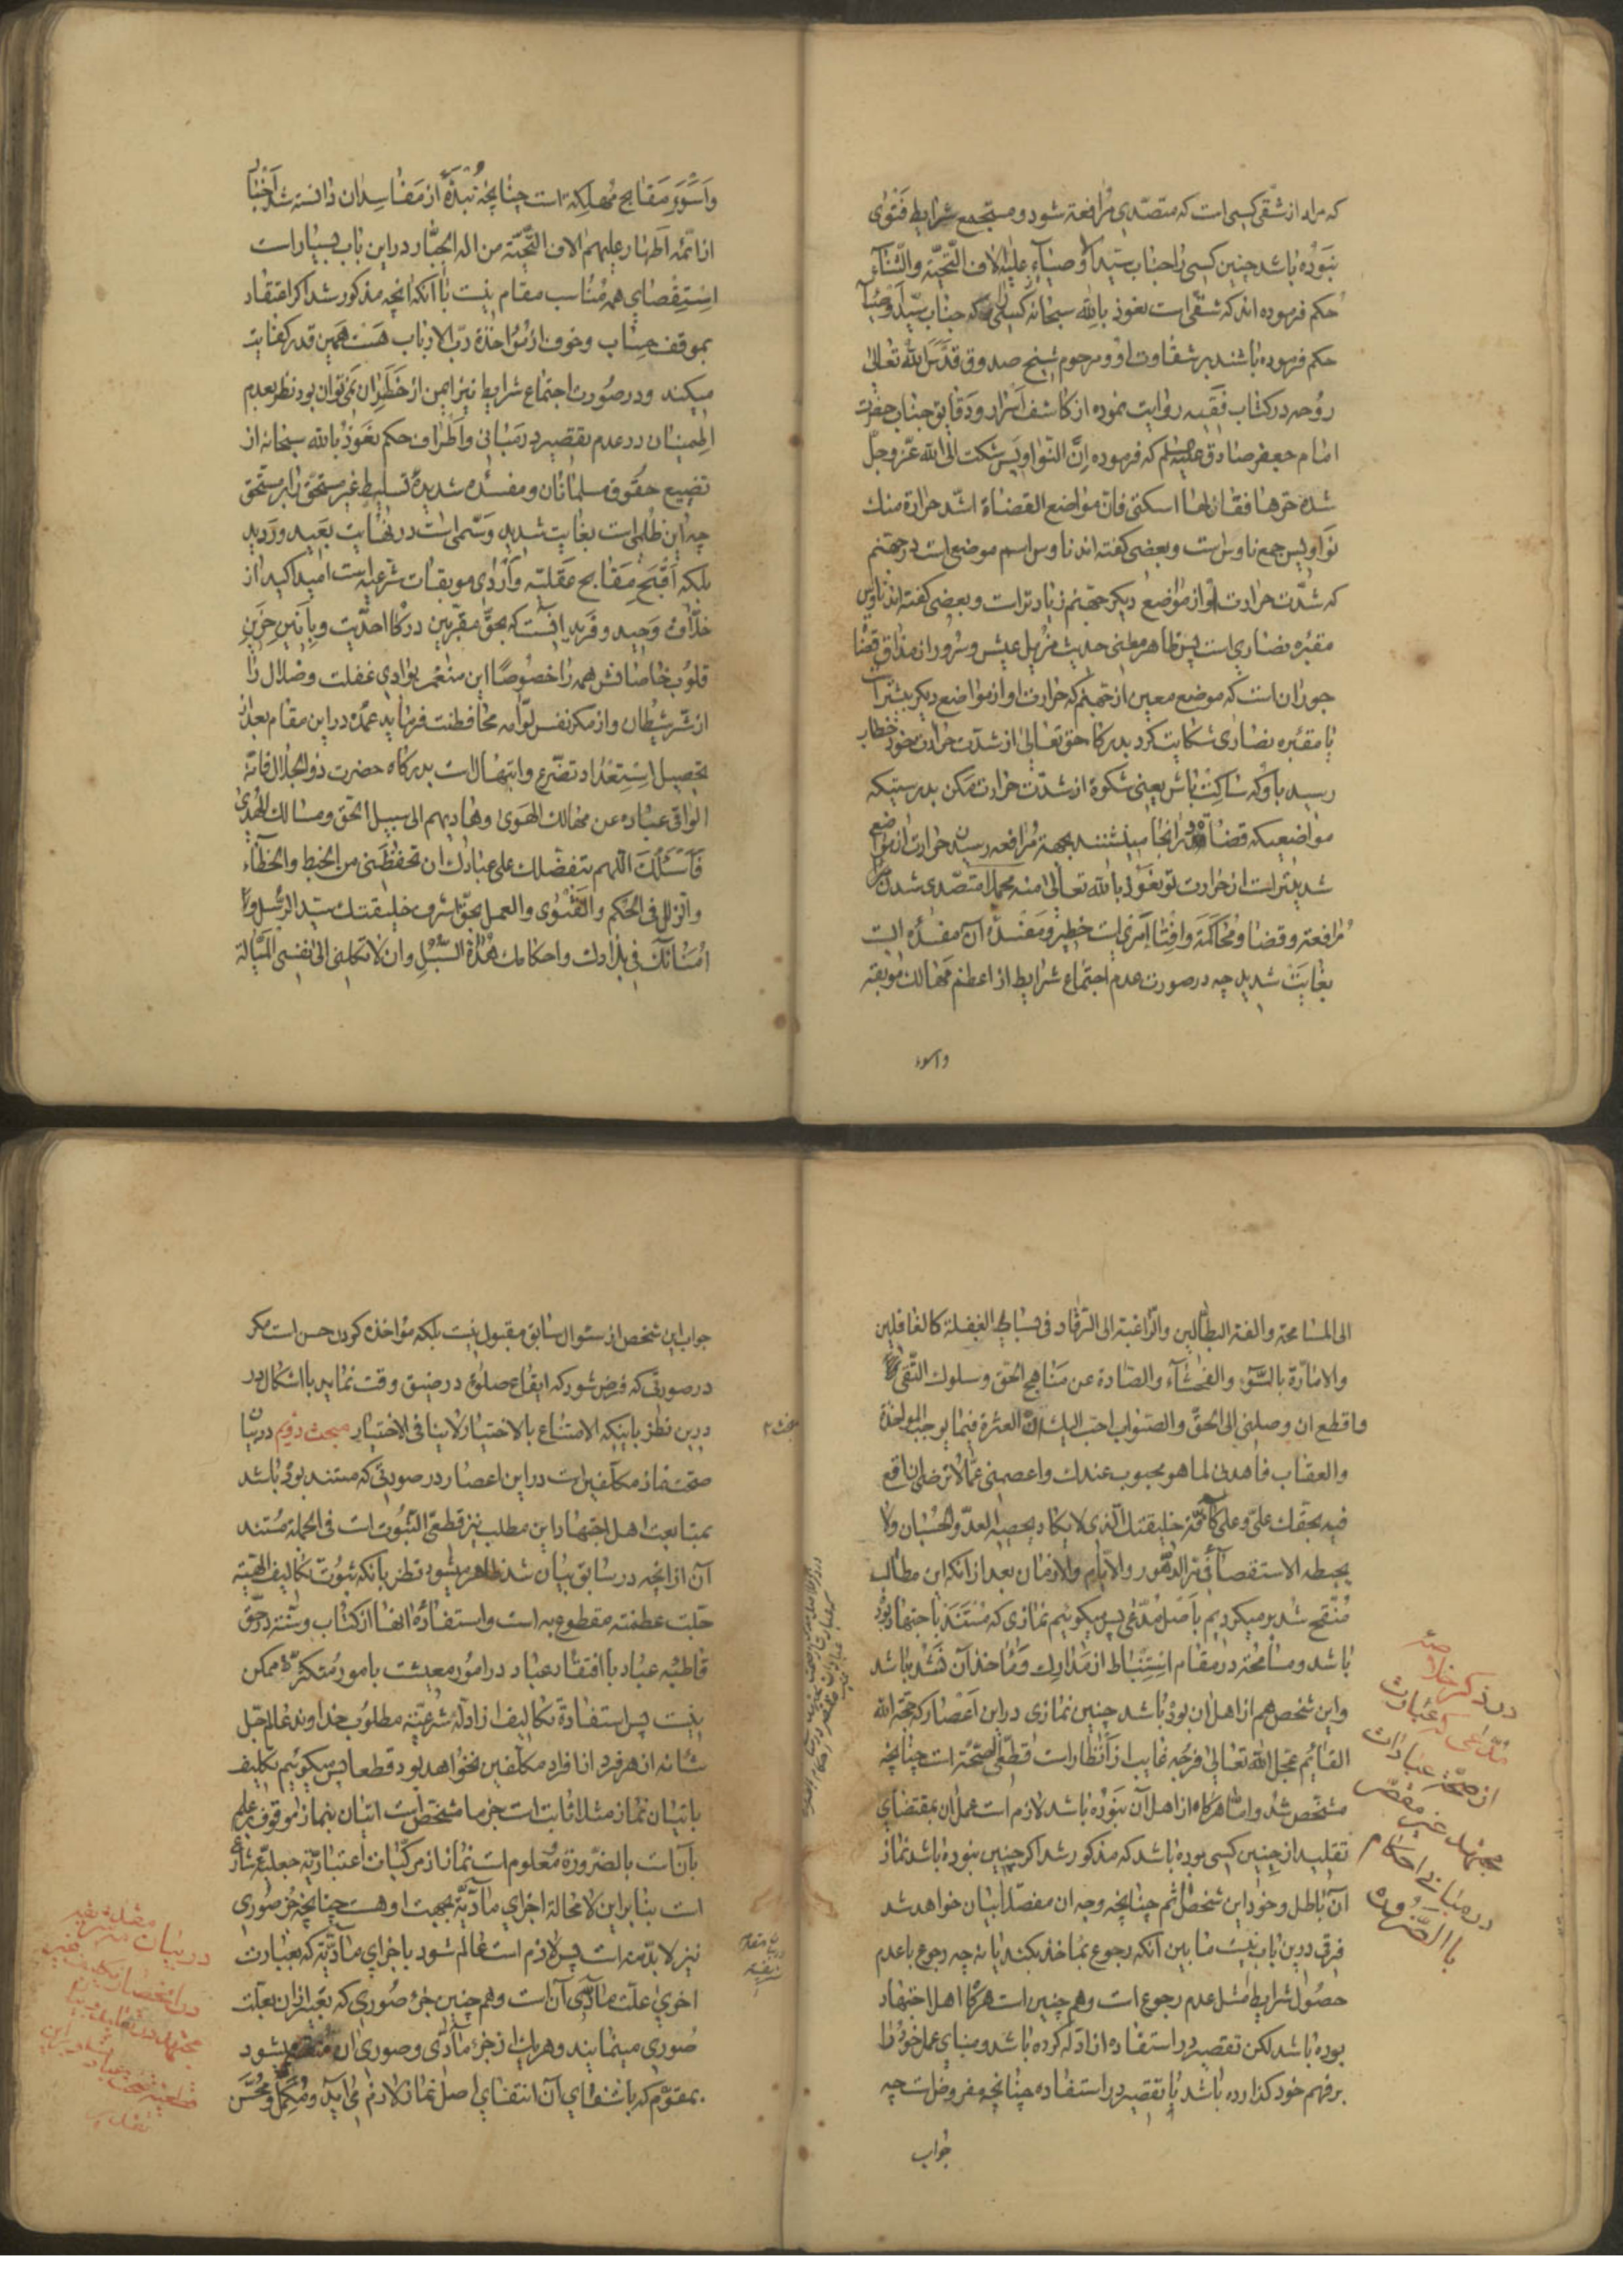 که مراد از شقی کسی است که متصدی مرافعه شود و مستجمع شرایط فتوی
نبوده باشد چنین کسی را جناب سید اوصیاء علیه الاف التحیة والثناء
حکم فرموده اند که شقی است نعوذ بالله سبحانه کسی که جناب سید اوصیا
حکم فرموده باشند بر شقاوت او و مرحوم شیخ صدوق قدس الله تعالی
روحه در کتاب فقیه روایت نموده از کاشف اسرار و دقایق جناب حضرت
امام جعفر صادق علیه السلم که فرموده اِنَّ النواویس شکت الی الله عز و جل
شدة حرها فقال لها اسکتی فان مواضع القضاة اشد حرارة منك
نواویس جمع ناوس است و بعضی کفته اند ناوس اسم موضعی است در جهنم
که شدت حرارت او از مواضع دیکر جهنم زیادتر است و بعضی کفته اند ناوس
مقبره نصاری است پس ظاهر معنی حدیث مزیل عیش و سرور از مذاق قضاة
جور ان است که موضع معین از جهنم که حرارت او از مواضع دیکر بیشتر است
یا مقبره نصاری شکایت کرد بدرکاه حق تعالی از شدت حرارت خود خطاب
رسید باو که ساکت باش یعنی شکوه از شدت حرارت مکن بدرستیکه
مواضعیکه قضاة در انجا مینشینند بجهة مرافعه رسیدن حرارت ان مواضع
شدیدتر است از حرارت تو نعوذ بالله تعالی منه مجملا متصدی شدن
مرافعه و قضا و محاکمه و افتا امری است خطیر و مفسده آن مفسده ایست
بغایت شدید چه در صورت عدم اجتماع شرایط از اعظم مهالك موبقه
واسوء
واَسْوَءِ مقابح مهلکه است چنانچه نبذه از مفاسدان دانسته شد اخبار
از ائمه اطهار علیهم الاف التحیة من اله الجبار در این باب بسیار است
استقصای همه مناسب مقام نیست با آنکه انچه مذکور شد اکر اعتقاد
بموقف حساب و خوف از مؤاخذه رب الارباب هست همین قدر کفایت
میکند و در صورت اجتماع شرایط نیز ایمن از خطر ان نمی توان بود نظر بعدم
اطمینان در عدم تقصیر در مبانی و اطراف حکم نعوذ بالله سبحانه از
تضییع حقوق مسلمانان و مفسده شدیده تسلیط غیر مستحق را بر مستحق
چه این ظلمی است بغایت شدید و ستمی است در نهایت بعید و ردید
بلکه اقبح مقابح عقلیه و اردی موبقات شرعیه است امید اکید از
خلاق وحید و فرید انست که بحق مقربین درکاه احدیت و بانین حزین
قلوب خاصانش همه را خصوصًا این منغمر بوادی غفلت و ضلال را
از شر شیطان و از مکر نفس لوامه محافظت فرماید عمده در این مقام بعد از
تحصیل استعداد تضرع و ابتهال است بدرکاه حضرت ذو الجلال فانه
الواقی عباده عن مهالك الهوی و هادیهم الی سبیل الحق و مسالك الهدی
فاسئلك اللهم بتفضلك علی عبادك ان تحفظنی من الخبط والخطاء
والزلل فی الحکم والفتوی والعمل بحق اشرف خلیقتك سید الرسل و
امنائك فی بلادك و احکامك هداة السبل و ان لا تکلنی الی نفسی المیالة
الی المسامحة والفة البطالین والراغبة الی الرقاد فی بساط الغفلة کالغافلین
والامارة بالسوء والفحشاء والصادة عن مناهج الحق و سلوك التقی
فاقطع ان وصلنی الی الحق والصواب احب الیك العثرة فیما یوجب المواخذة
والعقاب فاهدنی لما هو محبوب عندك واعصمنی عما لا ترضی ان اقع
فیه بحقك علی و علی کافة خلیقتك الذی لا یکاد یحصیه العد والحسبان ولا
یحیطه الاستقصاء فی مر الدهور والایام والازمان بعد از انکه این مطالب
منقح شد بر میکردیم باصل مدعی پس میکوئیم نمازی که مستند باجتهاد بوده
باشد و مسامحه در مقام استنباط از مدارك و مأخذ آن نشده باشد
و این شخص هم از اهل ان بوده باشد چنین نمازی در این اعصار که حجة الله
القائم عجل الله تعالی فرجه غایب از انظار است قطعی الصحة است چنانچه
مشخص شد و اما هرکاه از اهل آن نبوده باشد لازم است عمل ان بمقتضای
تقلید از چنین کسی بوده باشد که مذکور شد اکر چنین نبوده باشد نماز
آن باطل و خود این شخص آثم چنانچه وجه ان مفصلا بیان خواهد شد
فرقی درین باب نیست ما بین آنکه رجوع بمأخذ بکند یا نه چه رجوع با عدم
حصول شرایط مثل عدم رجوع است و هم چنین است هرکاه اهل اجتهاد
بوده باشد لکن تقصیر در استفاده از ادله کرده باشد و مبنای عمل خود را
بر فهم خود کذارده باشد با تقصیر در استفاده چنانچه مفروض است چه
جواب
در ذکر خلاصه
مدعی که عبارت
از صحة عبادات
مجتهد غیر مقصر
در مبانی احکام
بالضروره
جواب این شخص از سئوال سابق مقبول نیست بلکه مؤاخذه کردن حسن است مکر
در صورتی که فرض شود که ایقاع صلوة در ضیق وقت نماید با اشکال در
درین نظر باینکه الامتناع بالاختیار لا ینافی الاختیار مبحث دویم در بیان
صحت نماز مکلفین است در این اعصار در صورتی که مستند بوده باشد
بمتابعت اهل اجتهاد این مطلب نیز قطعی الثبوت است فی الجمله مستند
آن از انچه در سابق بیان شد ظاهر میشود نظر بانکه ثبوت تکالیف الهیه
جلت عظمته مقطوع به است و استفاده انها از کتاب و سنة در حق
قاطبه عباد با افتقاد عباد در امور معیشت بامور متکثره ممکن
نیست پس استفاده تکالیف از ادله شرعیه مطلوب خداوند عالم جل
شانه از هر فرد از افراد مکلفین نخواهد بود قطعا پس میکوئیم تکلیف
باتیان نماز مثلا ثابت است جزما مشخص است اتیان بنماز موقوف بعلم
بآن است بالضرورة معلوم است نماز از مرکبات اعتباریه جعلیه شارع
است بنابراین لا محاله اجزای مادیة بجهت او هست چنانچه جزء صوری
نیز لابد منه است پس لازم است عالم شود باجزای مادیة که بعبارت
اخری علت مادی آن است و هم چنین جزء صوری که تعبیر از ان بعلت
صوری مینمایند و هر یك از جزء مادی و صوری ان منقسم میشود
بمقوم که بانتفای آن انتفای اصل نماز لازم می آید و مکمل و محسن